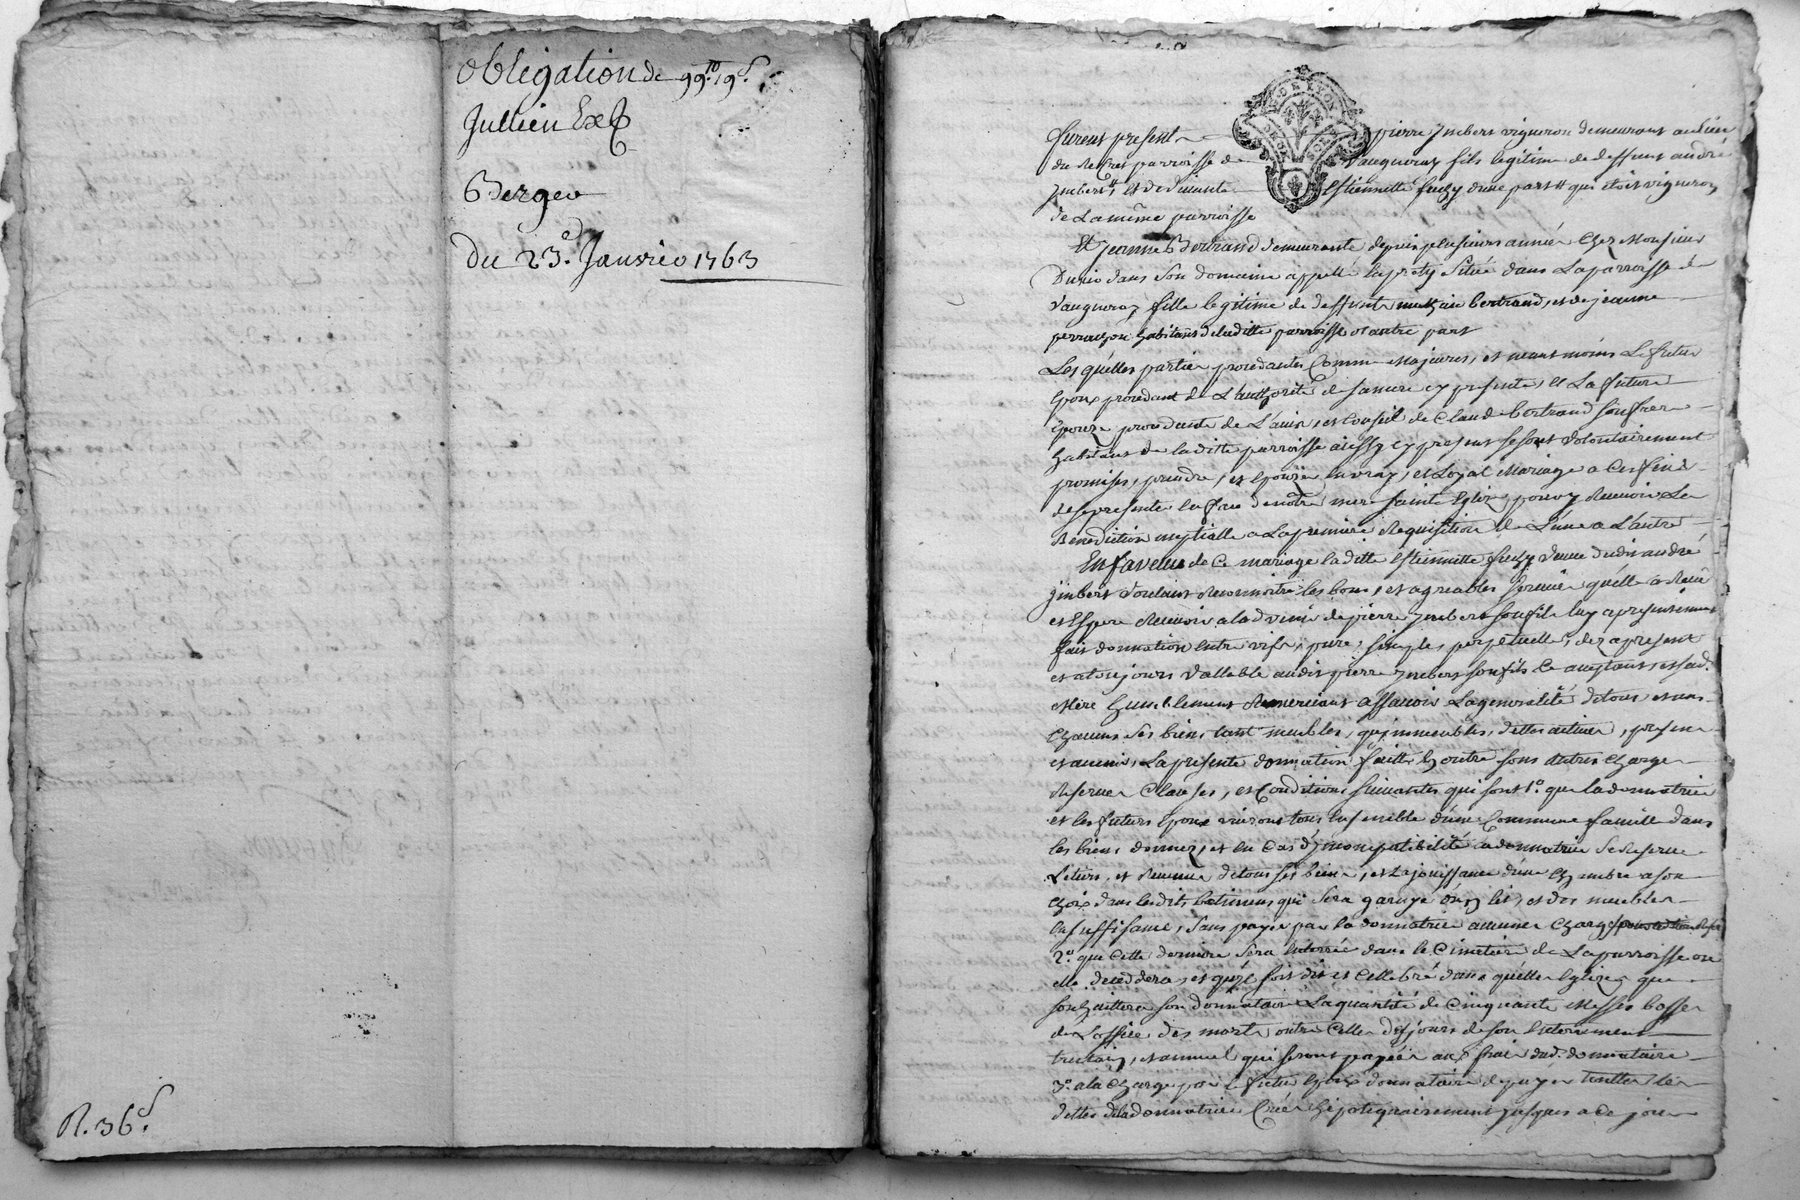 Obligation de 99# 19s
Jullien Ex
Berger
Du 23e. Janvier 1763
R. 36s.
DE LYON
furent present pierre ymbert vigneron demeurant au lieu
du parroisse de Vaugneray fils legitime de deffunt andré
ymbert, et de vivante Estiennette feuzy d'une part qui etoit vigneron
de La même parroisse
Et jeanne Bertrand demeurante depuis plusieurs année chez Monsieur
dans son domaine appellé Situé dans La parroisse de
Vaugneray fille legitime de deffunt bertrand, et de jeanne
habitans de laditte parroisse d'autre part
Lesquelles partie procedantes Comme Majeures, et neant moins Le futur
Epoux procedant de L'authorité de sa mere cy presente, et La future
Epouze procedente de L'avis, et Conseil de Claude bertrand son frere
habitant de laditte parroisse aussy cy present se sont volontairement
promises, prendre, et epouzer en vray, et Loyal Mariage a Ces fins
de se presenter en face de notre mere sainte Eglize, pour y Recevoir La
Benediction nuptialle a La premiere Requisition de L'une a L'autre
En faveur de Ce mariage laditte Estiennette feuzy veuve dudit andré
ymbert voulant Reconnoitre les bons, et agreables service qu'elle a Reçu
et Espere Recevoir a l'advenir de pierre ymbert son fils luy a presentement
fait donnation entre vifs, pure, simple, perpetuelle, dez a present
et a toujours vallable audit pierre ymbert son fils Ce acceptant, et sad.
Mere humblement Remerciant assavoir La generalité de tous, et uns
chacuns ses biens tant meubles, qu'immeubles, dettes actives, presens
et avenir, La presente donnation faitte En outre sous autres charges
Reserves Clauses, et Conditions suivantes qui sont 1o. que la donnatrice
et les futurs epoux vivront tous Ensemble d'une Commune famille dans
les biens donnez, et en Cas d'ynconpatibilité la donnatrice se Reserve
Le tiers, et Revenu de tous ses biens, et La jouissance d'une chambre a son
choix dans lesdits batimens qui sera garnye d'un lit, et des meubles
en suffisance, sans payer par la donnatrice aucunes charges
2o. que Cette derniere sera Enterrée dans le Cimetiere de La parroisse ou
elle deceddera, et qu'il soit dit et Cellebré dans quelle Eglize que
souhaittera son donnataire La quantité de Cinquante Messes basses
de L'office des morts outre Celles des jours de son Enterrement
et annuel qui seront payées aux frais dud. donnataire
3o. a la charge par le futur Epoux donnataire de payer touttes les
dettes de la donnatrice Créés hipotequairement jusques a ce jour